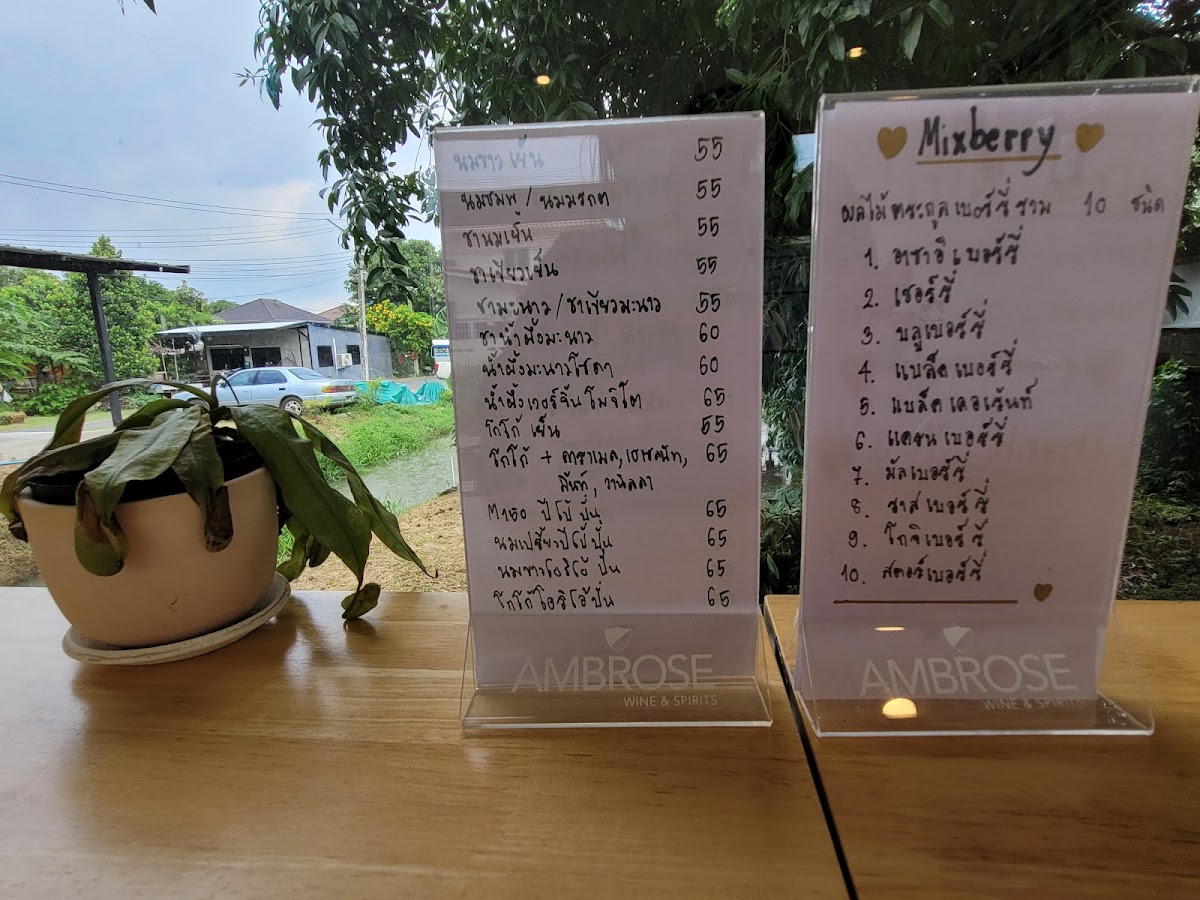 นมขาวเย็น 55
นมชมพู / นมมรกต 55
ชานมเย็น 55
ชาเขียวเย็น 55
ชามะนาว / ชาเขียวมะนาว 55
ชาน้ำผึ้งมะนาว 60
น้ำผึ้งมะนาวโซดา 60
น้ำผึ้งเวอร์จิ้นโมจิโต 65
โกโก้ เย็น 55
โกโก้ + คาราเมล, เฮเซลนัท, 65
มิ้นท์, วานิลลา
M150 ปีโป้ ปั่น 65
นมเปรี้ยวปีโป้ ปั่น 65
นมขาวโอริโอ้ ปั่น 65
โกโก้โอริโอ้ปั่น 65
AMBROSE
WINE & SPIRITS
Mixberry
ผลไม้ตระกูลเบอร์รี่รวม 10 ชนิด
1. อาซาอิเบอร์รี่
2. เชอร์รี่
3. บลูเบอร์รี่
4. แบล็คเบอร์รี่
5. แบล็คเคอเร้นท์
6. แครนเบอร์รี่
7. มัลเบอร์รี่
8. ราสเบอร์รี่
9. โกจิเบอร์รี่
10. สตอร์เบอร์รี่
AMBROSE
WINE & SPIRITS